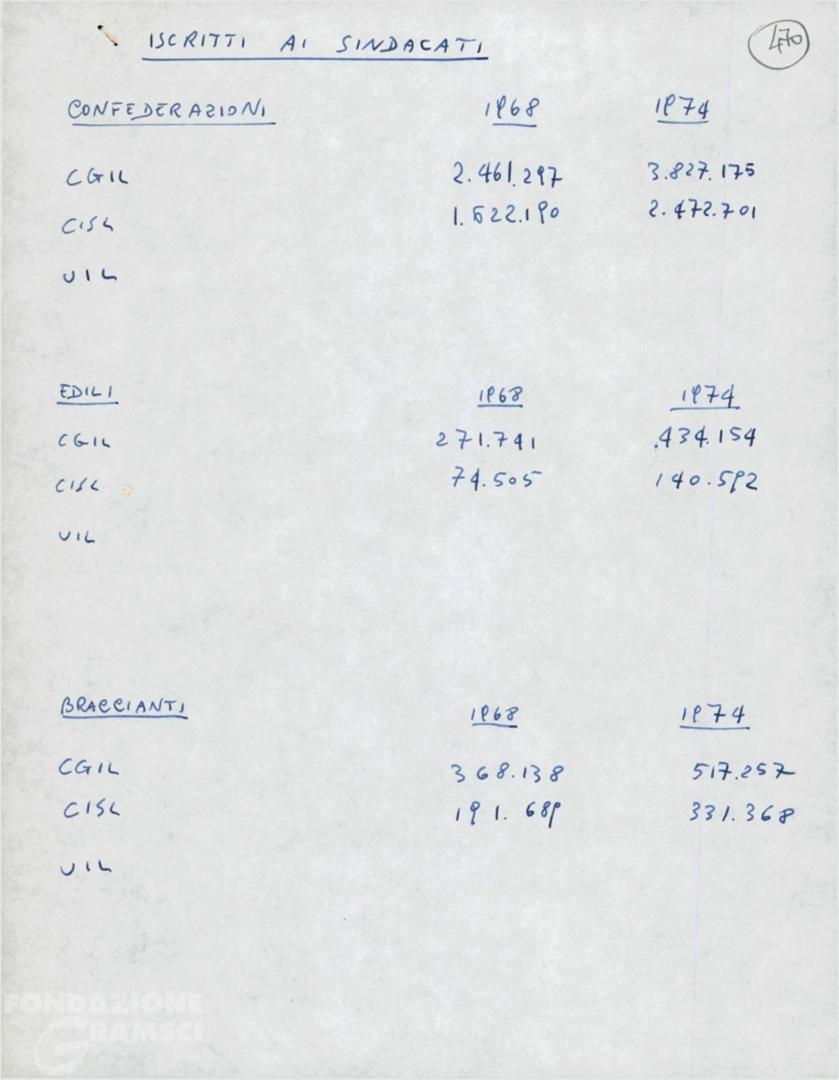 ISCRITTI AI SINDACATI
470
CONFEDERAZIONI 1968 1974
CGIL 2.461.297 3.827.175
CISL 1.622.190 2.472.701
UIL
EDILI 1968 1974
CGIL 271.741 434.154
CISL 74.505 140.592
UIL
BRACCIANTI 1968 1974
CGIL 368.138 517.257
CISL 191.689 331.368
UIL
FONDAZIONE
GRAMSCI